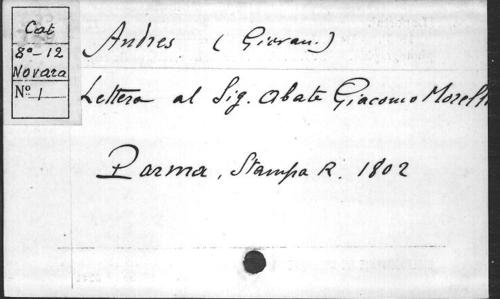 Cat
8º-12
Novara
Nº 1
Andres (Giovan.)
Lettera al Sig. Abate Giacomo Morelli
Parma, Stampa R. 1802